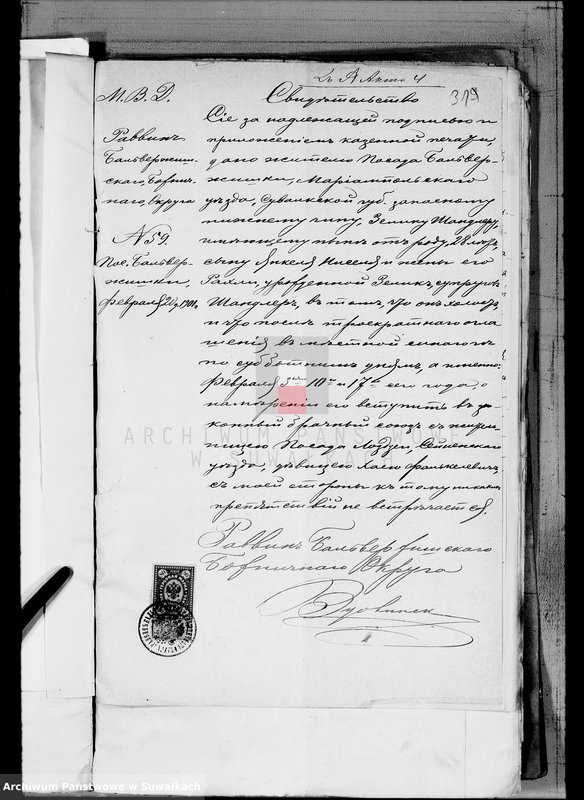 Къ А Акта 4
319
М. В. Д.
Раввинъ
Бальвержиш-
скаго Божнич-
наго Округа
N 59.
Пос. Бальвер-
жишки,
Февраля 21 д. 1901 г.
Свидѣтельство
Сіе за надлежащей подписью и
приложеніемъ казенной печати,
дано жителю Посада Бальвер-
жишки, Маріампольскаго
уѣзда, Сувалкской губ. запасному
нижнему чину, Зелику Шандлеру,
имѣющему нынѣ отъ роду, 28 лѣтъ,
сыну Янкеля и жены его
Рахли, урожденной Зеликъ, супруговъ
Шандлеръ, въ томъ, что онъ холостъ,
и что послѣ троекратнаго огла-
шенія въ мѣстной синагогѣ
по субботнимъ днямъ, а именно:
Февраля 3го 10го и 17го сего года, о
намѣреніи его вступить въ за-
конный брачный союзъ съ жи-
тельницею Посада Лоздзее, Сейненскаго
уѣзда, дѣвицею Хаею Франкелевичъ,
съ моей стороны къ тому никакихъ
препятствій не встрѣчается.
Раввинъ Бальвержишскаго
Божничнаго Округа
ARCHIWUM PAŃSTWOWE
W SUWAŁKACH
Archiwum Państwowe w Suwałkach